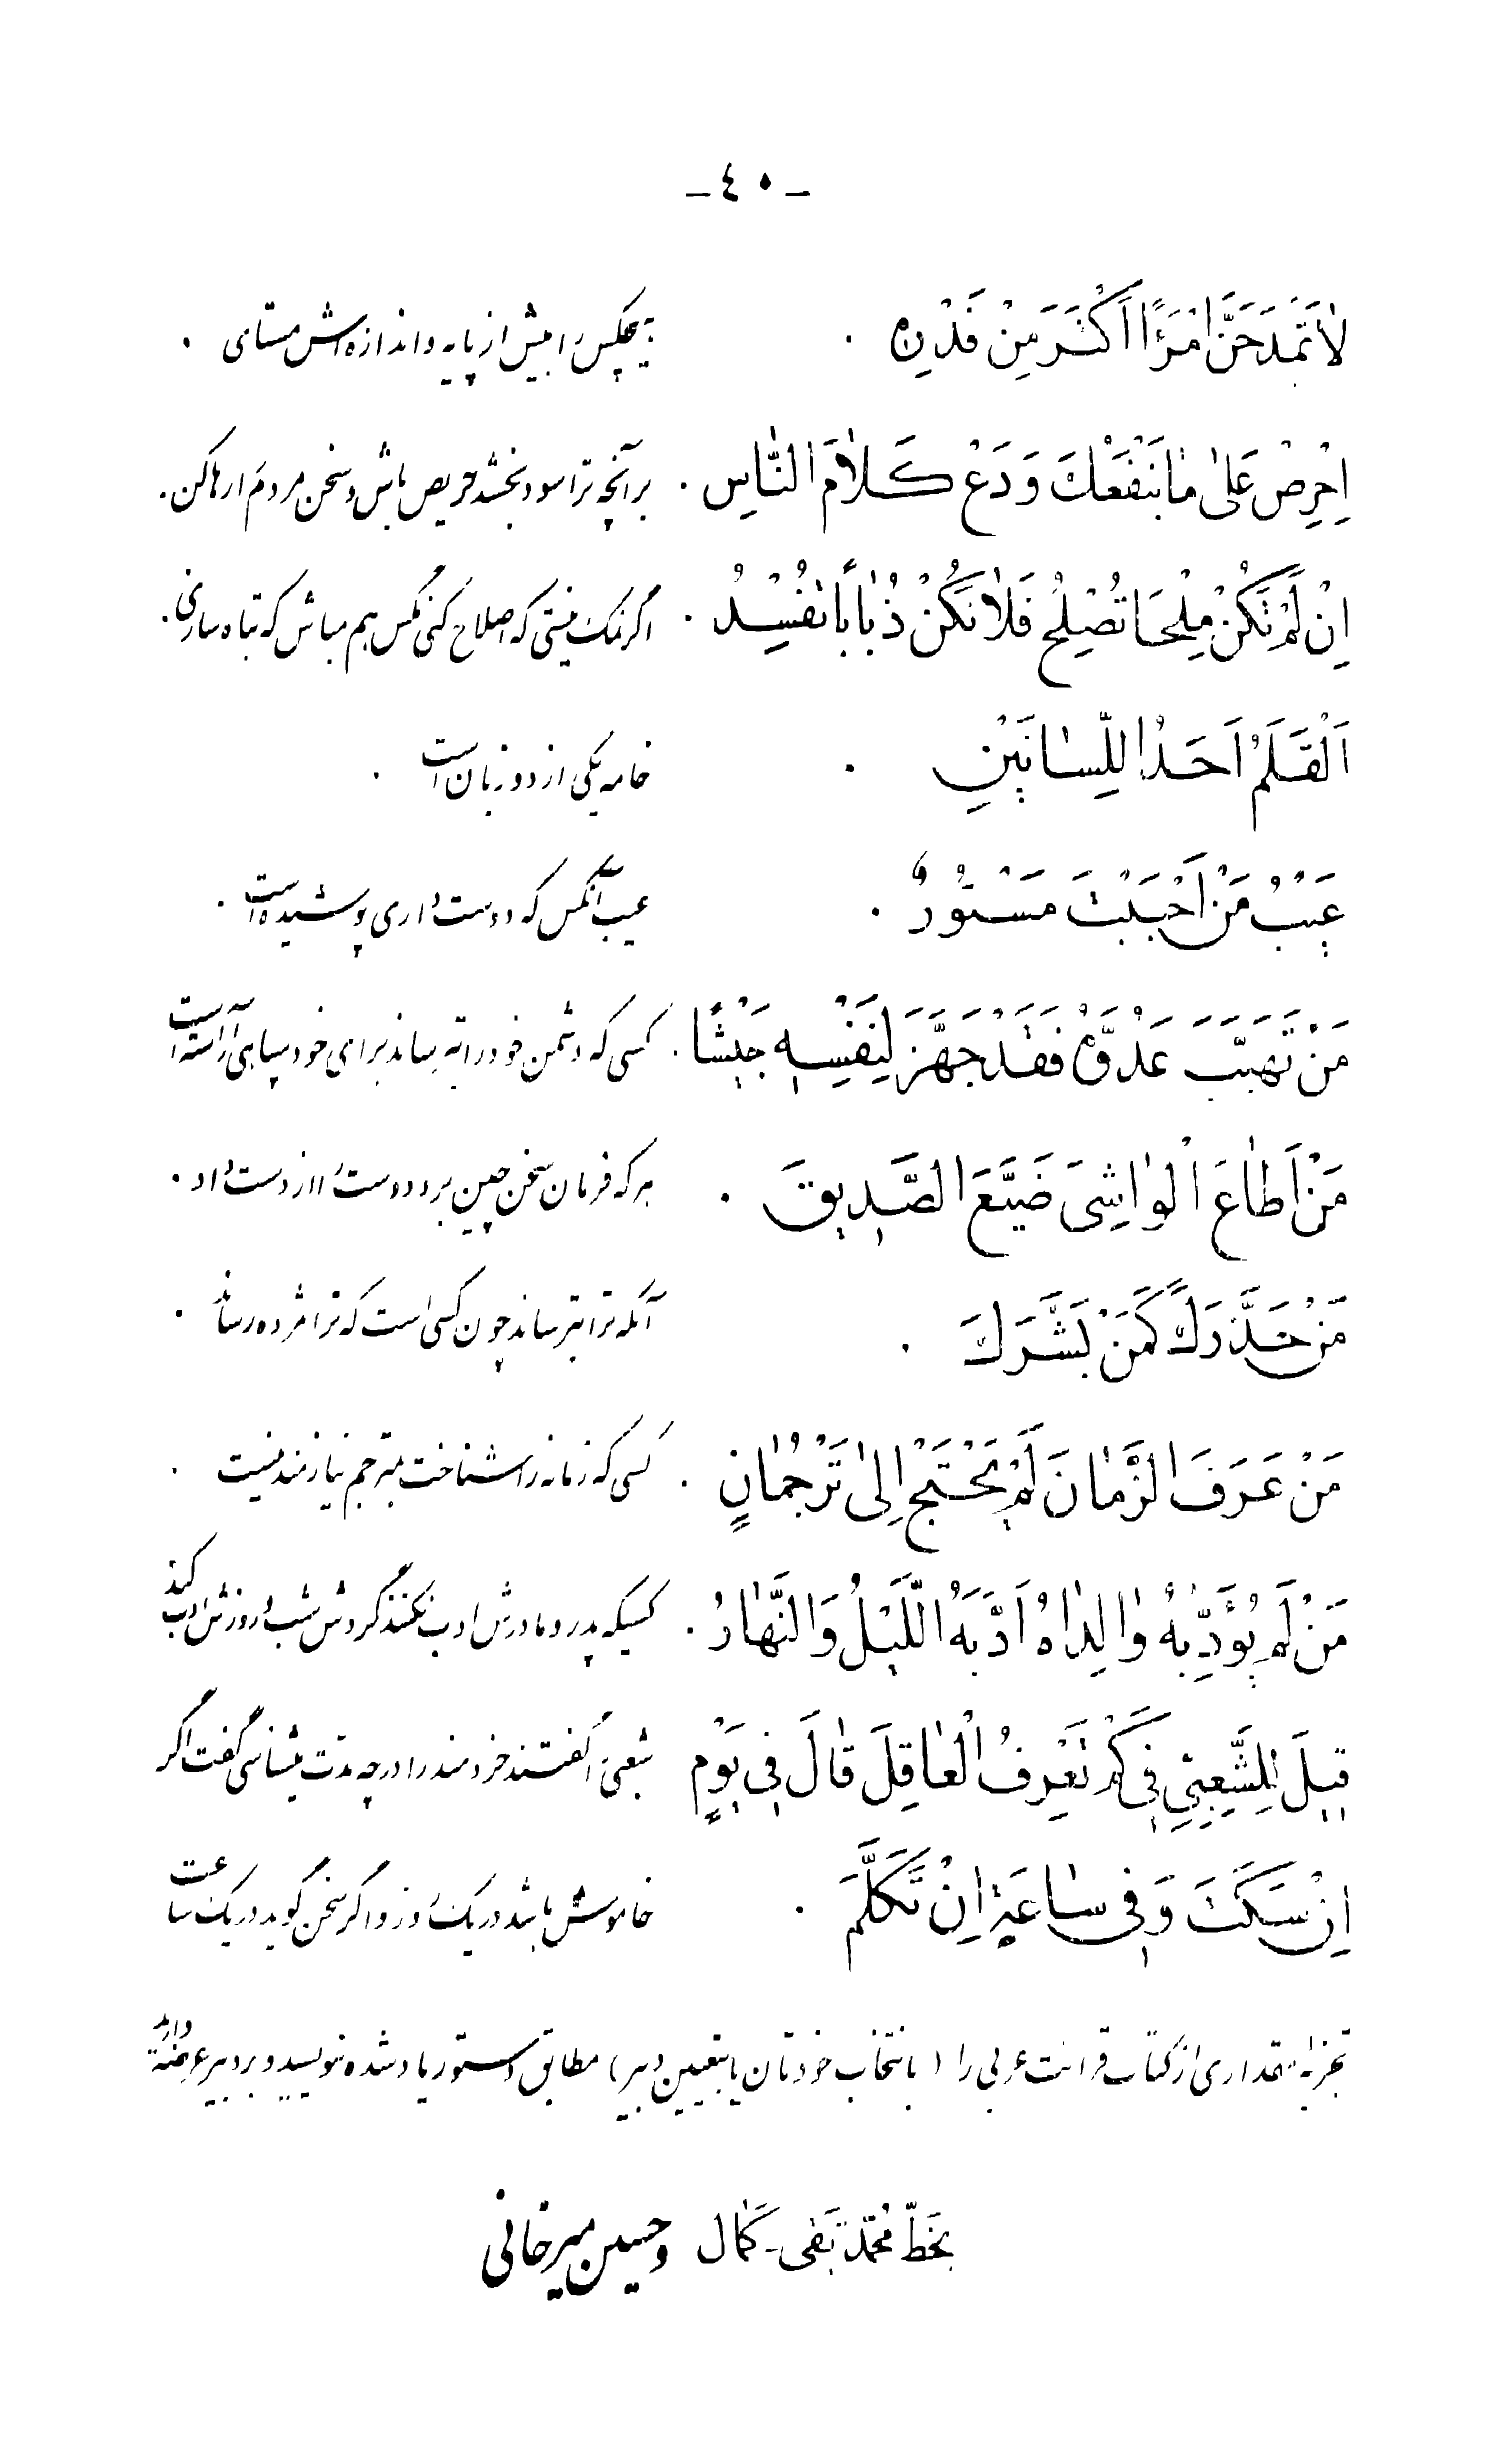 -٤٠-
لاٰتَمْدَحَنَّ امْرَءًا اَكْثَرَ مِنْ قَدْرِهِ . هیچکس را بیش از پایه و اندازه‌اش مستای .
اِحْرِصْ عَلىٰ مٰا يَنْفَعُكَ وَ دَعْ كَلاٰمَ النّٰاسِ . برآنچه ترا سود بخشد حریص باش و سخن مردم را رها کن.
اِنْ لَمْ تَكُنْ مِلْحًا تُصْلِحُ فَلاٰ تَكُنْ ذُبٰابًا تُفْسِدُ . اگر نمک نیستی که اصلاح کنی مگس هم مباش که تباه سازی.
اَلْقَلَمُ اَحَدُ اللِّسٰانَيْنِ . خامه یکی از دو زبان است .
عَيْبُ مَنْ اَحْبَبْتَ مَسْتُورٌ . عیب آنکس که دوست داری پوشیده است .
مَنْ تَهَيَّبَ عَدُوَّهُ فَقَدْ جَهَّزَ لِنَفْسِهِ جَيْشًا . کسی که دشمن خود را بترساند برای خود سپاهی آراسته است
مَنْ اَطٰاعَ الْوٰاشِىَ ضَيَّعَ الصَّدِيقَ . هرکه فرمان سخن چین برد دوست را از دست داد .
مَنْ حَذَّرَكَ كَمَنْ بَشَّرَكَ . آنکه ترا بترساند چون کسی است که ترا مژده رساند .
مَنْ عَرَفَ الزَّمٰانَ لَمْ يَحْتَجْ اِلىٰ تَرْجُمٰانٍ . کسی که زمانه را شناخت بمترجم نیازمند نیست .
مَنْ لَمْ يُؤَدِّبْهُ وٰالِدٰاهُ اَدَّبَهُ اللَّيْلُ وَالنَّهٰارُ . کسیکه پدر و مادرش ادب نکنند گردش شب و روزش ادب کند
قِيلَ لِلشَّعْبِيِّ فِى كَمْ تَعْرِفُ الْعٰاقِلَ قٰالَ فِى يَوْمٍ شعبی را گفتند خردمند را در چه مدت میشناسی گفت اگر
اِنْ سَكَتَ وَ فِى سٰاعَةٍ اِنْ تَكَلَّمَ . خاموش باشد در یک روز و اگر سخن گوید در یک ساعت
تجزیهٔ مقداری از کتاب قرائت عربی را (بانتخاب خودتان یا بتعیین دبیر) مطابق دستور یاد شده بنویسید و بر دبیر عرضه دارید
بخطّ محمّد تقی - کمال و حسین میرخانی